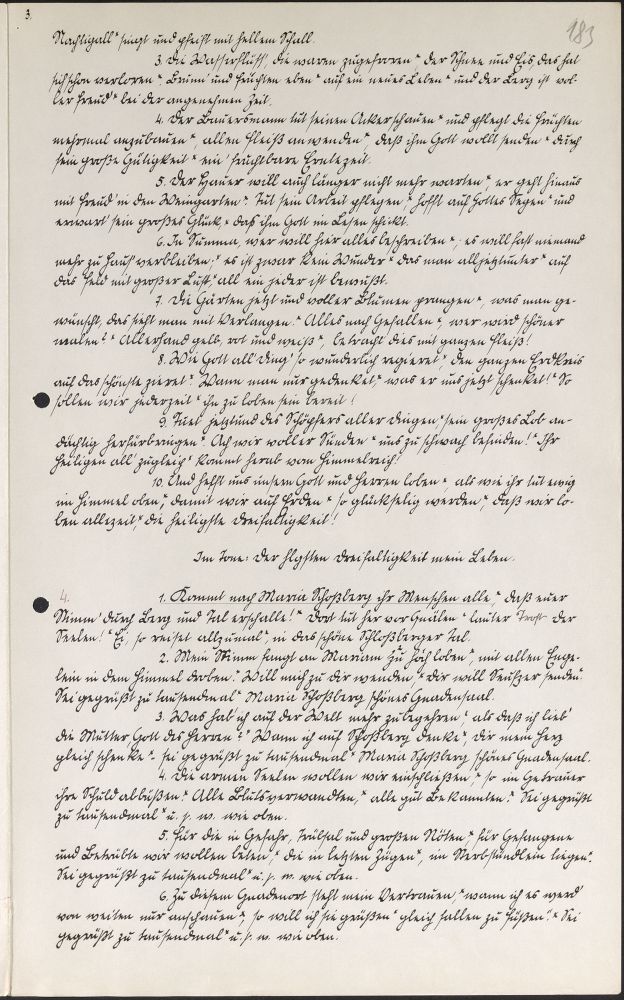 3.
183
Nachtigall * singt und pfeift mit hellem Schall.
3. Die Wasserflüss', die waren zugefroren *, der Schnee und Eis, das hat
sich schon verloren * Bäum' und Früchten eben * auf ein neues Leben * und der Berg ist vol-
ler Freud' * bei der angenehmen Zeit.
4. Der Bauersmann tut seinen Acker schauen * und pflegt die Früchten
mehrmal anzubauen *, allen Fleiß anwenden *, daß ihm Gott wollt senden * durch
sein große Gütigkeit * ein' fruchtbare Erntezeit.
5. Der Hauer will auch länger nicht mehr warten *, er geht hinaus
mit Freud' in den Weingarten *. Tut sein Arbeit pflegen *, hofft auf Gottes Segen * und
erwart' sein großes Glück, * daß ihm Gott im Lesen schickt.
6. In Summa, wer will hier alles beschreiben *, es will fast niemand
mehr zu Haus' verbleiben, * es ist zwar kein Wunder * das man all jetzunter * auf
das Feld mit großer Lust * all ein jeder ist bewußt.
7. Die Gärten jetzt und voller Blumen prangen *, was man ge-
wünscht, das sieht man mit Verlangen. * Alles nach Gefallen *, wer wird schöner
malen? * Allerhand gelb, rot und weiß *, betracht' dies mit ganzen Fleiß!
8. Wie Gott all' Ding' so wunderlich regieret *, den ganzen Erdkreis
auf das schönste zieret *. Wann man nur gedenket, * was er uns jetzt schenket! * So
sollen wir jederzeit * ihn zu loben sein bereit!
9. Tuet jetzund des Schöpfers aller Dingen * sein großes Lob an-
dächtig herfürbringen *. Ach wir voller Sünden * uns zu schwach befinden! * Ihr
Heiligen all' zugleich * kommt herab vom Himmelreich!
10. Und helft uns unsern Gott und Herren loben *, als wie ihr tut ewig
im Himmel oben, * damit wir auf Erden * so glückselig werden, * daß wir lo-
ben allezeit, * die heiligste Dreifaltigkeit!
Im Tone: Der hlgsten Dreifaltigkeit mein Leben.
4.
1. Kommt nach Maria Schoßberg ihr Menschen alle *, daß euer
Stimm' durch Berg und Tal erschalle! * Dort tut hervor Quälen * lauter Trost der
Seelen! * Ei, so reiset allzumal *, in das schöne Schloßberger Tal.
2. Mein Stimm fangt an Mariam zu hoch loben *, mit allen Enge-
lein in dem Himmel droben. * Will mich zu dir wenden * dir will Seufzer senden.
Sei gegrüßt zu tausendmal * Maria Schoßberg schönes Gnadensaal.
3. Was hab' ich auf der Welt mehr zu begehren *, als daß ich lieb'
die Mutter Gott des Herren? * Wann ich auf Schoßberg denke *, dir mein Herz
gleich schenke *. Sei gegrüßt zu tausendmal * Maria Schoßberg schönes Gnadensaal.
4. Die armen Seelen wollen wir einschließen *, so im Gebrauer
ihre Schuld abbüßen. * Alle Blutsverwandten, * alle gut Bekannten. * Sei gegrüßt
zu tausendmal * u. s. w. wie oben.
5. Für die in Gefahr, Trübsal und großen Nöten, * für Gefangene
und Betrübte wir wollen beten *, die in letzten Zügen *, im Sterbstündlein liegen *.
Sei gegrüßt zu tausendmal * u. s. w. wie oben.
6. Zu diesem Gnadenort steht mein Vertrauen, * wann ich es werd'
von weiten nur anschauen *, so will ich sie grüßen * gleich fallen zu Füßen. * Sei
gegrüßt zu tausendmal * u. s. w. wie oben.